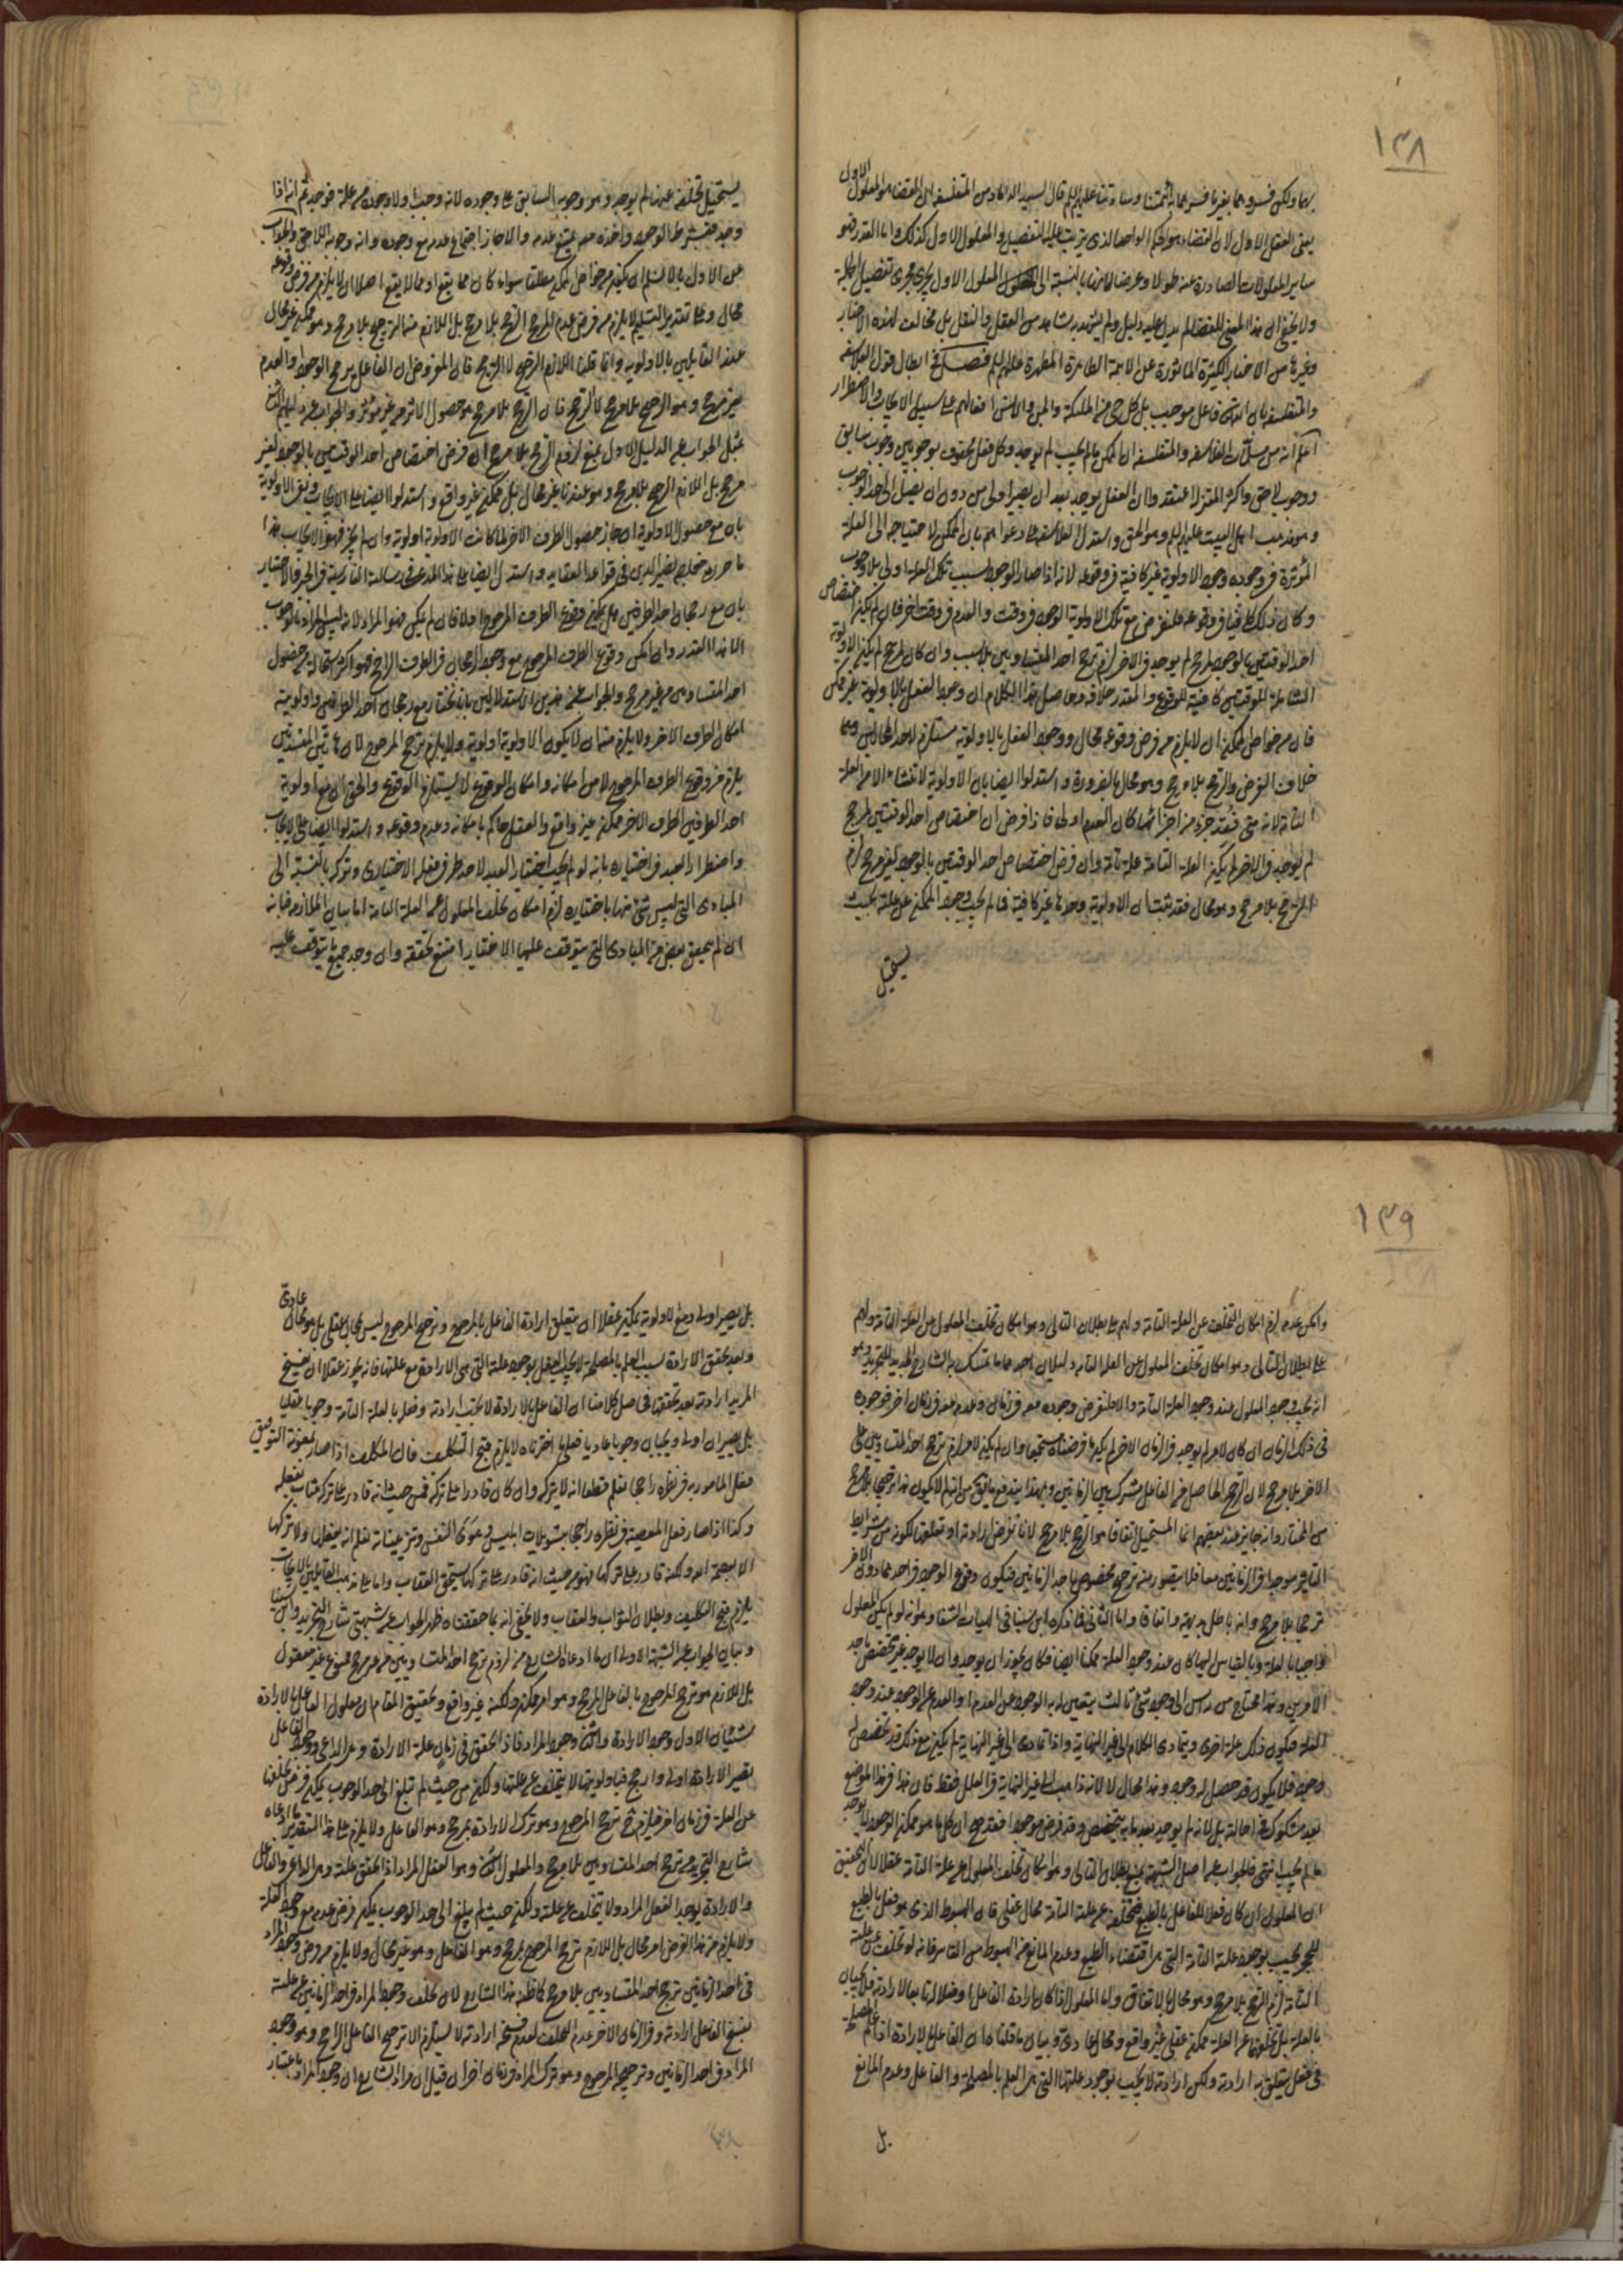 ١٣٨
بهما ولكن فسروهما بغير ما فسر بهما أئمتنا وساداتنا عليهم السلام قال السيد الداماد من المتفلسفة ان القضاء هو المعلول الاول
يعنى العقل الاول لان القضاء هو الحكم الواحد الذى يترتب عليه التفصيل والمعلول الاول كذلك واما القدر فهو
ساير المعلولات الصادرة عنه طولا وعرضا لانها بالنسبة الى المعلول الاول يجرى مجرى تفصيل الجملة
ولا يخفى ان هذا المعنى للقضاء لم يدل عليه دليل ولم يشهد به شاهد من العقل والنقل بل مخالف لهذه الاخبار
وغيرها من الاخبار الكثيرة الماثورة عن الائمة الطاهرة المطهرة عليهم السلم فصل فى ابطال قول الفلاسفة
والمتفلسفة بان الله تعالى فاعل موجب بل كل حى من الملئكة والجن والانس افعالهم على سبيل الايجاب والاضطرار
اعلم انه من مسلمات الفلاسفة والمتفلسفة ان الممكن ما لم يجب لم يوجد وكل فعل محفوف بوجوبين وجوب سابق
ووجوب لاحق واكثر المعتزلة اعتقدوا ان الفعل يوجد بعد ان يصير اولى من دون ان يصل الى حد الوجوب
وهو مذهب اهل البيت عليهم السلم وهو الحق واستدل الفلاسفة على دعواهم بان الممكن لاحتياجه الى العلة
المؤثرة فى وجوده وجود الاولوية غير كافية فى وقوعه لانه اذا صار الوجود بسبب تلك العلة اولى بلا وجوب
وكان ذلك كافيا فى وقوعه فلنفرض مع تلك الاولوية الوجود فى وقت والعدم فى وقت اخر فان لم يكن اختصاص
احد الوقتين بالوجود لمرجح لم يوجد فى الاخر لزم ترجح احد المتساويين بلا سبب وان كان لمرجح لم يكن الاولوية
الشاملة للوقتين كافية للوقوع والمقدر خلافه وحاصل هذا الكلام ان وجود الفعل بالاولوية غير ممكن
فان من خواص الممكن ان لا يلزم من فرض وقوعه محال ووجود الفعل بالاولوية مستلزم لاحد المحالين وهما
خلاف الفرض والترجح بلا مرجح وهو محال بالضرورة واستدلوا ايضا بان الاولوية لا تنشاء الا من العلة
التامة لانه متى فقد جزء من اجزائها كان العدم اولى فاذا فرض ان اختصاص احد الوقتين لمرجح
لم يوجد فى الاخر لم يكن العلة التامة علة تامة وان فرض اختصاص احد الوقتين بالوجود بغير مرجح لزم
الترجح بلا مرجح وهو محال فقد ثبت ان الاولوية وحدها غير كافية فما لم يجب وجود الممكن عن علته بحيث
يستحيل
يستحيل تخلفه عنها لم يوجد وهو وجوبه السابق على وجوده لانه وجب اولا وجوده من علة فوجد ثم انه اذا
وجد فبشرط الوجود واخذه معه يمتنع عدمه والا جاز اجتماع عدمه مع وجوده وانه وجوبه اللاحق والجواب
عن الاول بالا نسلم ان يكون من خواص الممكن مطلقا سواء كان مما يقع او مما لا يقع اصلا ان لا يلزم من فرض وقوعه
محال وعلى تقدير التسليم لا يلزم من فرض عدم المرجح الترجح بلا مرجح بل اللازم منه الترجيح بلا مرجح وهو ممكن غير محال
عند القايلين بالاولوية وانما قلنا اللازم الترجيح لا الترجح فان المفروض ان الفاعل يرجح الوجود والعدم
بغير مرجح وهو الترجيح بلا مرجح لا الترجح فان الترجح بلا مرجح هو حصول الاثر من غير مؤثر والجواب عن دليلهم الثانى
بمثل الجواب عن الدليل الاول بمنع لزوم الترجح بلا مرجح ان فرض اختصاص احد الوقتين بالوجود لغير
مرجح بل اللازم الترجيح بلا مرجح وهو عندنا غير محال بل ممكن غير واقع واستدلوا ايضا على الايجاب ونفى الاولوية
بان مع حصول الاولوية ان جاز حصول الطرف الاخر لما كانت الاولوية اولوية وان لم يجز فهو الايجاب هذا
ما حرره نصير الدين فى قواعد العقايد واستدل ايضا على هذا المدعى فى رسالته الفارسية فى الجبر والاختيار
بان مع رجحان احد الطرفين هل يمكن وقوع الطرف المرجوح او لا فان لم يمكن فهو المراد لانه ليس المراد بالوجوب
الا هذا القدر وان امكن وقوع الطرف المرجوح مع وجود الرجحان فى الطرف الراجح فهو اكثر استحالة من حصول
احد المتساويين من غير مرجح والجواب عن هذين الاستدلالين بانا نختار مع رجحان احد الطرفين واولوية
امكان الطرف الاخر ولا يلزم منه ان لا يكون الاولوية اولوية ولا يلزم ترجح المرجوح لان هاتين المفسدتين
يلزم من وقوع الطرف المرجوح لا من امكانه وامكان الوقوع لا يستلزم الوقوع والحق ان مع اولوية
احد الطرفين الطرف الاخر ممكن غير واقع والعقل حاكم بامكانه وعدم وقوعه واستدلوا ايضا على الايجاب
واضطرار العبد فى اختياره بانه لو لم يجب اختيار العبد لاحد طرفى فعله الاختيارى وتركه بالنسبة الى
المبادى التى ليس شئ منها باختياره لزم امكان تخلف المعلول عن العلة التامة اما بيان الملازمة فبانه
ان لم يتحقق بعض من المبادى التى يتوقف عليها الاختيار امتنع تحققه وان وجد جميع ما يتوقف عليه
١٣٩
وامكن عدمه لزم امكان التخلف عن العلة التامة ولهم على بطلان التالى وهو امكان تخلف المعلول عن العلة التامة ولهم
على بطلان التالى وهو امكان تخلف المعلول عن العلة التامة دليلان احدهما ما تمسك به الشارح الجديد للتجريد وهو
انه يجب وجود المعلول عند وجود العلة التامة والا فلنفرض وجوده معه فى زمان وعدمه معه فى زمان اخر فوجوده
فى ذلك الزمان ان كان لامر لم يوجد فى الزمان الاخر لم يكن ما فرضناه مستجمعا وان لم يكن لامر لزم ترجح احد المتساويين على
الاخر بلا مرجح لان الترجح الحاصل من الفاعل مشترك بين الزمانين وبهذا يندفع ما يتوهم من انه لم لا يكون هذا ترجيحا بلا مرجح
من المختار وانه جايز عند بعضهم انما المستحيل اتفاقا هو الترجح بلا مرجح لانا نفرض ارادته او تعلقها لكونه من شرايط
التاثير موجودا فى الزمانين معا فلا يتصور منه ترجيح مخصوص باحد الزمانين فيكون وقوع الوجود فى احدهما دون الاخر
ترجحا بلا مرجح وانه باطل بديهة واتفاقا واما الثانى فما ذكره ابن سينا فى الهيات الشفا وهو انه لو لم يكن المعلول
واجبا بالعلة وبالقياس اليها كان عند وجود العلة ممكنا ايضا فكان يجوز ان يوجد وان لا يوجد غير مختص باحد
الامرين وهذا محتاج من راس الى وجود شئ ثالث يتعين له به الوجود عن العدم او العدم عن الوجود عند وجود
العلة فيكون ذلك علة اخرى ويتمادى الكلام الى غير النهاية واذا تمادى الى غير النهاية لم يكن مع ذلك قد تخصص له
وجوده فلا يكون قد حصل له وجود وهذا محال لا لانه ذاهب الى غير النهاية فى العلل فقط فان هذا فى هذا الموضع
بعد مشكوك فى احالته بل لانه لم يوجد بعد ما به يتخصص وقد فرض موجودا فقد صح ان كل ما هو ممكن الوجود لا يوجد
ما لم يجب انتهى فالجواب عن اصل الشبهة بمنع بطلان التالى وهو امكان تخلف المعلول عن علته التامة عقلا لان التحقيق
ان المعلول ان كان فعلا للفاعل بالطبع فتخلفه عن علته التامة محال عقلى فان الهبوط الذى هو فعل بالطبع
للحجر يجب بوجود علته التامة التى هى اقتضاء الطبع وعدم المانع من الهبوط من القاسر فانه لو تخلف عن علته
التامة لزم الترجح بلا مرجح وهو محال بالاتفاق واما المعلول اذا كان ارادة الفاعل او فعلا له تابعا لارادته فلا يجبان
بالعلة بل تخلفهما عن العلة ممكن عقلى غير واقع ومحال عادى وبيان ما قلناه ان الفاعل بالارادة اذا علم المصلحة
فى فعل يتعلق به ارادته ولكن ارادته لا يجب بوجود علتها التى هى العلم بالمصلحة والفاعل وعدم المانع
بل
بل يصير اولى ومع الاولوية يمكن عقلا ان يتعلق ارادة الفاعل بالمرجوح وترجيح المرجوح ليس بمحال عقلى بل هو محال عادى
وبعد تحقق الارادة بسبب العلم بالمصلحة لا يجب الفعل بوجود علته التى هى الارادة مع علتها فانه يجوز عقلا ان يفسخ
المريد ارادته بعد تحققها فحاصل كلامنا ان الفاعل بالارادة لا يجب ارادته وفعله بالعلة التامة وجوبا عقليا
بل يصيران اولى ويجبان وجوبا عاديا فعلى ما اخترناه لا يلزم قبح التكليف فان المكلف اذا صار بمعونة التوفيق
فعل المامور به فى نظره راجحا نعلم قطعا انه لا يتركه وان كان قادرا على تركه فمن حيث انه قادر على تركه يثاب بفعله
وكذا اذا صار فعل المعصية فى نظره راجحا بتسويلات ابليس وهوى النفس وتزيينات نعلم انه يفعلها ولا يتركها
الا بعصمة الله ولكنه قادر على تركها فهو من حيث انه قادر على تركها يستحق العقاب واما على مذهب القايلين بالايجاب
يلزم قبح التكليف وبطلان الثواب والعقاب ولا يخفى انه بما حققناه ظهر الجواب عن شبهتى شارح التجريد وابن سينا
وبيان الجواب عن الشبهة الاولى ان ما ادعاه الشارح من لزوم ترجح احد المتساويين من غير مرجح ممنوع غير معقول
بل اللازم هو ترجيح المرجوح بالفاعل المرجح وهو امر ممكن ولكنه غير واقع وتحقيق المقام ان معلول الفاعل بالارادة
شيئان الاول وجود الارادة والثانى وجود المراد فاذا تحقق فى زمان علة الارادة وهى الداعى ووجود الفاعل
تصير الارادة اولى وارجح فباولويتها لا يتخلف عن علتها ولكن من حيث لم تبلغ الى حد الوجوب يمكن فرض تخلفها
عن العلة فى زمان اخر فيلزم ح ترجيح المرجوح وهو ترك الارادة بمرجح وهو الفاعل ولا يلزم على هذا التقدير ما ادعاه
شارح التجريد من ترجح احد المتساويين بلا مرجح والمعلول الثانى وهو الفعل المراد اذا تحقق علته وهى الداعى والفاعل
والارادة يوجد الفعل المراد ولا يتخلف عن علته ولكن حيث لم يبلغ الى حد الوجوب يمكن فرض عدمه مع وجود العلة
ولا يلزم من هذا الفرض امر محال بل اللازم ترجيح المرجوح بمرجح وهو الفاعل وهو غير محال ولا يلزم من فرض وجود المراد
فى احد الزمانين ترجح احد المتساويين بلا مرجح كما ظنه هذا الشارح لان تخلف وجود المراد فى احد الزمانين عن علته
بفسخ الفاعل ارادته وفى الزمان الاخر عدم التخلف لعدم فسخ ارادته لا يستلزم الا ترجيح الفاعل الراجح وهو وجود
المراد فى احد الزمانين وترجيحه المرجوح وهو ترك المراد فى زمان اخر ان قيل ان مراد الشارح ان وجود المراد باعتبار